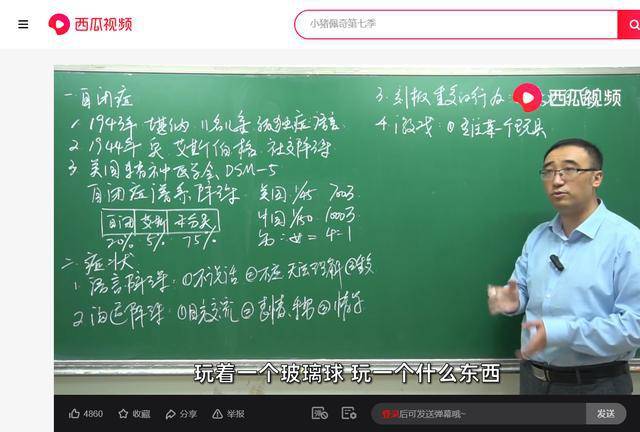 西瓜视频
小猪佩奇第七季
搜
一 自闭症
1. 1943年 堪纳 11名儿童 孤独症
2. 1944年 艾斯伯格 社交障碍
3. 美国精神 医学会 DSM-5
自闭症谱系障碍 美国:1/45 700万
自闭 艾斯 未分类 中国 1/150 1000万
20% 5% 75% 男:女=4:1
二.症状
1. 语言障碍:①不说话 ②不应 无法理解 ③
2. 沟通障碍:①目光交流 ②表情
3. 刻板重复的行为
西瓜视频
4. 游戏:①专注某一个玩具
玩着一个玻璃球 玩一个什么东西
4860 收藏 分享 举报 弹 登录后可发送弹幕哦~ 发送